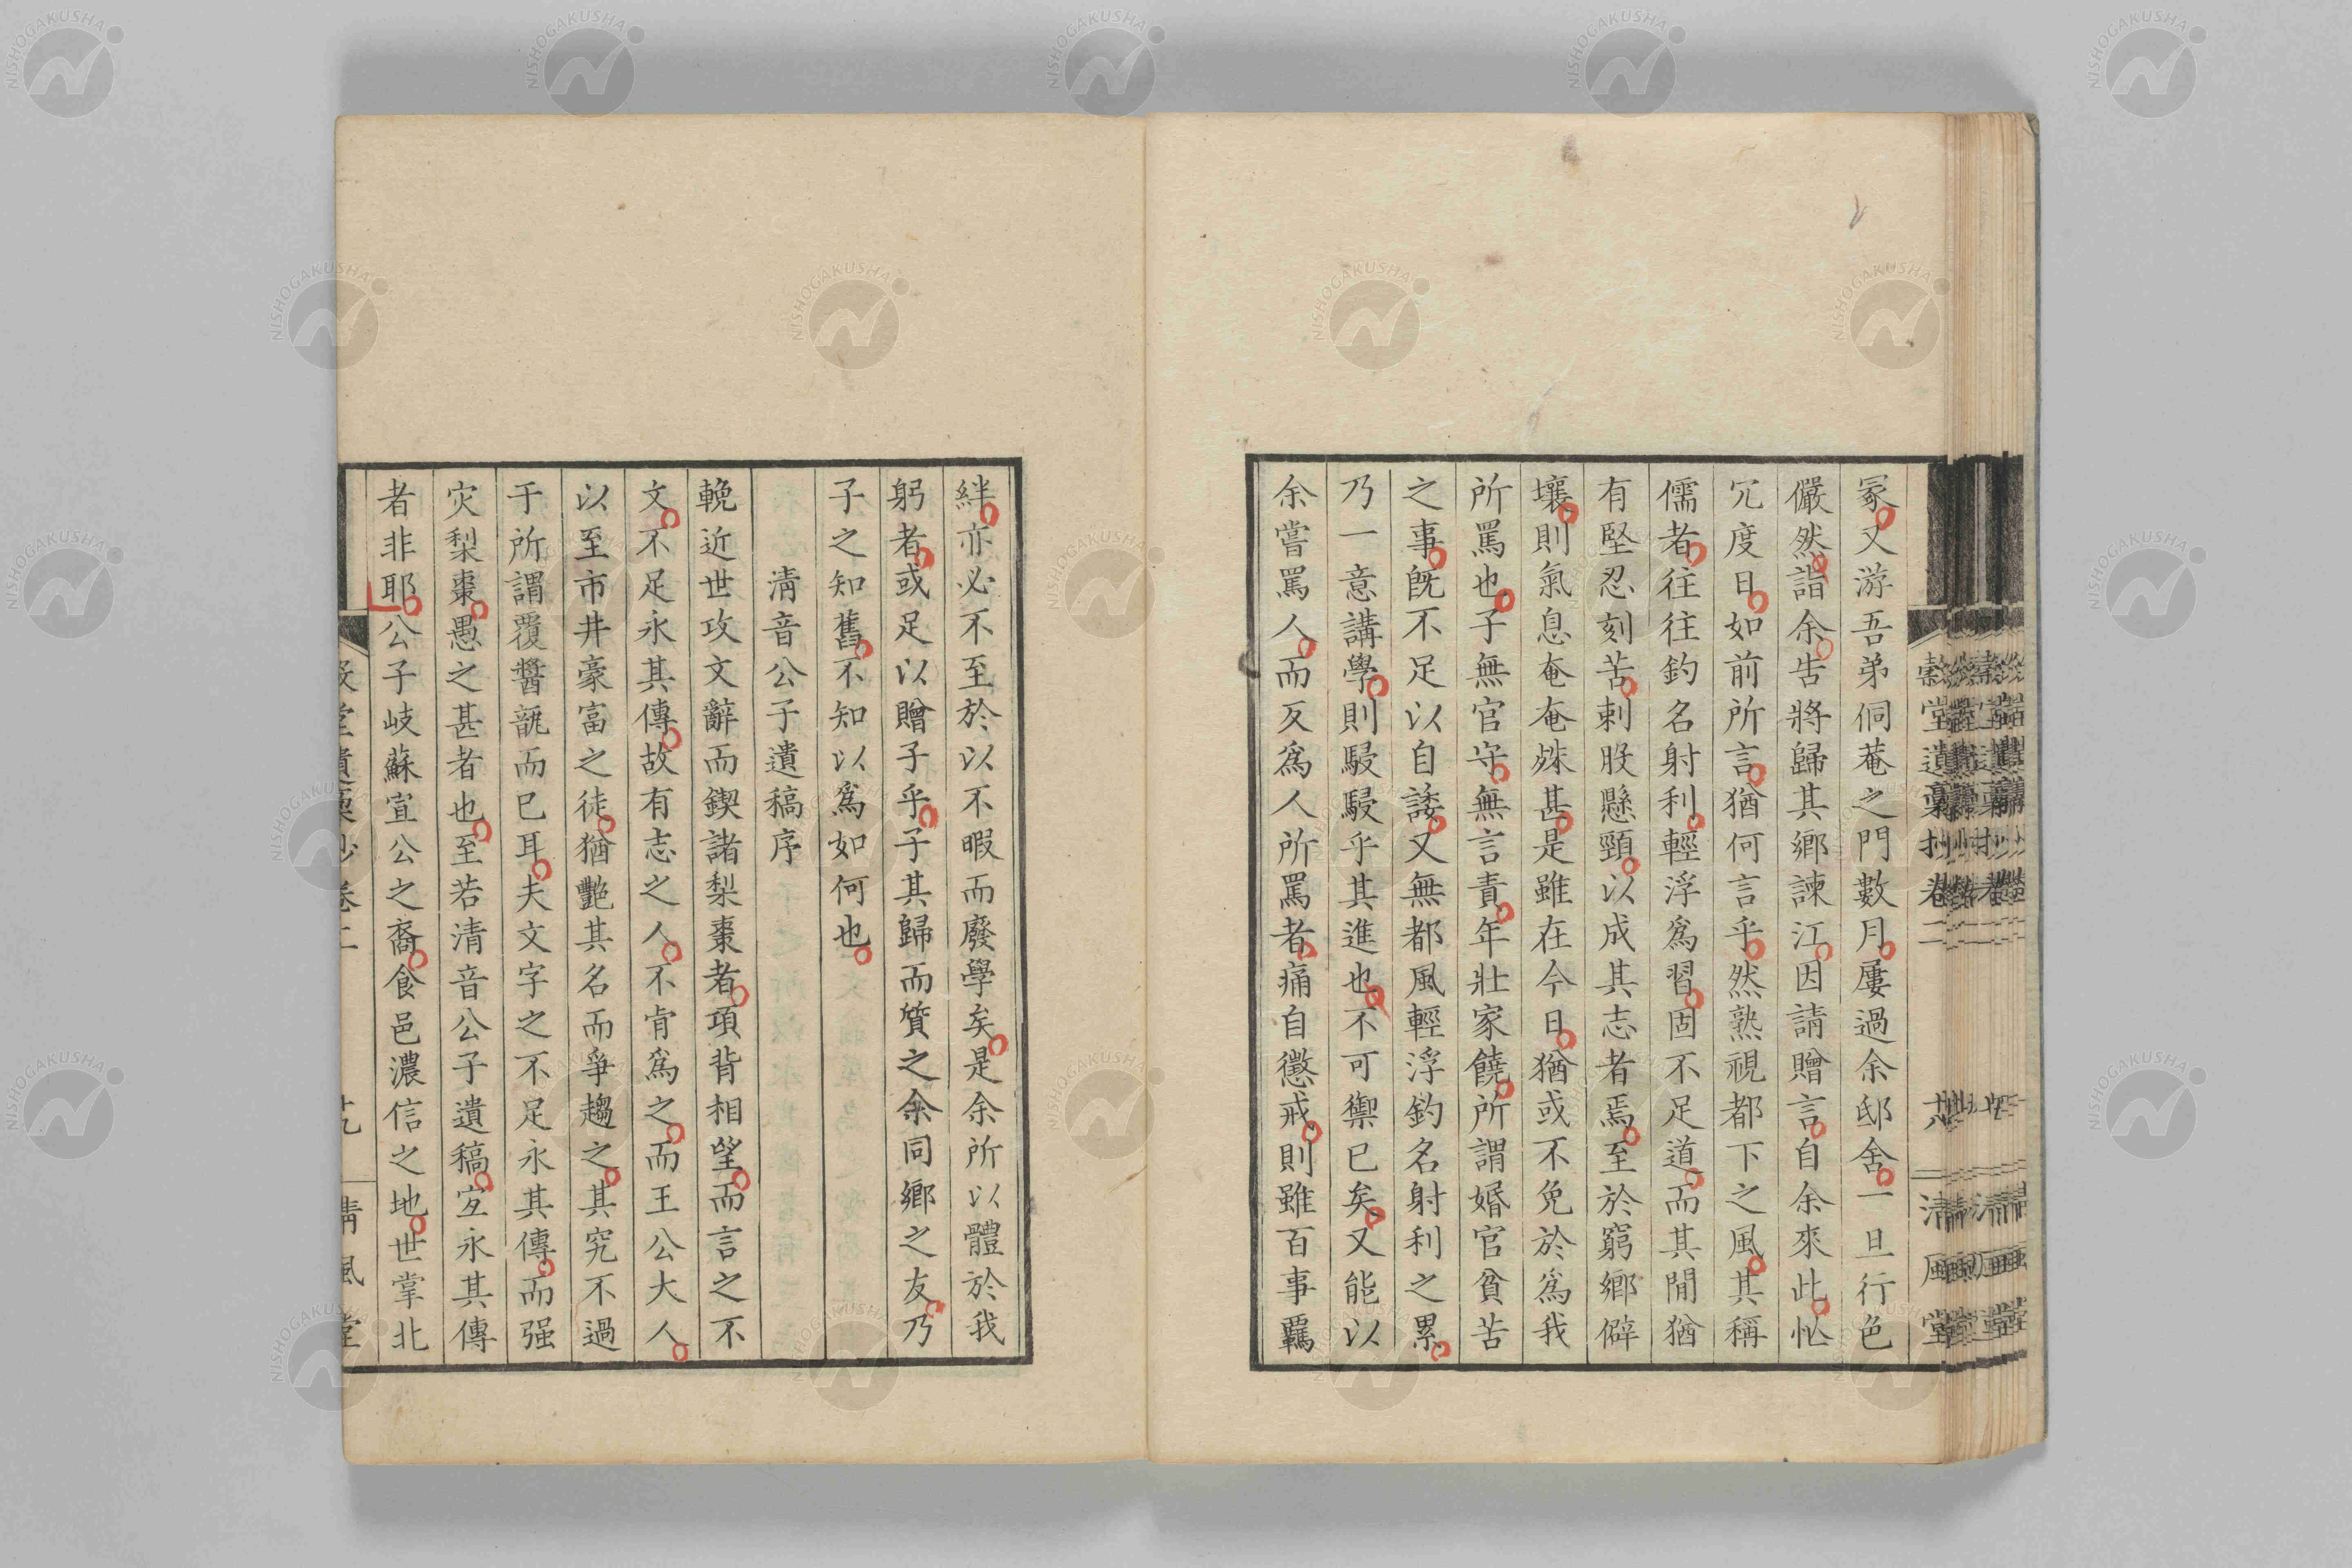 冢又游吾弟侗菴之門數月屢過余邸舍一旦行色
儼然詣余告將歸其鄉諫江因請贈言自余來此忙
冗度日如前所言猶何言乎然熟視都下之風其稱
儒者往往釣名射利輕浮爲習固不足道而其間猶
有堅忍刻苦刺股懸頸以成其志者焉至於窮鄉僻
壤則氣息奄奄殊甚是雖在今日猶或不免於爲我
所罵也子無官守無言責年壯家饒所謂婚官貧苦
之事旣不足以自諉又無都風輕浮釣名射利之累
乃一意講學則駸駸乎其進也不可禦已矣又能以
余嘗罵人而反爲人所罵者痛自懲戒則雖百事羈
絆亦必不至於以不暇而廢學矣是余所以體於我
躬者或足以贈子乎子其歸而質之余同鄉之友乃
子之知舊不知以爲如何也
淸音公子遺稿序
輓近世攻文辭而鍥諸梨棗者項背相望而言之不
文不足永其傳故有志之人不肯爲之而王公大人
以至市井豪富之徒猶艷其名而爭趨之其究不過
于所謂覆醬瓿而已耳夫文字之不足永其傳而强
灾梨棗愚之甚者也至若清音公子遺稿宜永其傳
者非耶公子岐蘇宣公之裔食邑濃信之地世掌北
穀堂遺稾抄卷二
清風堂
NISHOGAKUSHA